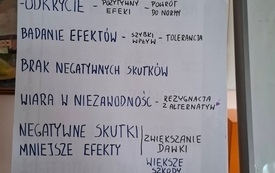 -ODKRYCIE - POZYTYWNY EFEKI - POWRÓT DO NORMY
BADANIE EFEKTÓW - SZYBKI WPŁYW - TOLERANCJA
BRAK NEGATYWNYCH SKUTKÓW
WIARA W NIEZAWODNOŚĆ - REZYGNACJA Z ALTERNATYW
NEGATYWNE SKUTKI ZWIĘKSZANIE DAWKI
MNIEJSZE EFEKTY WIĘKSZE SZKODY